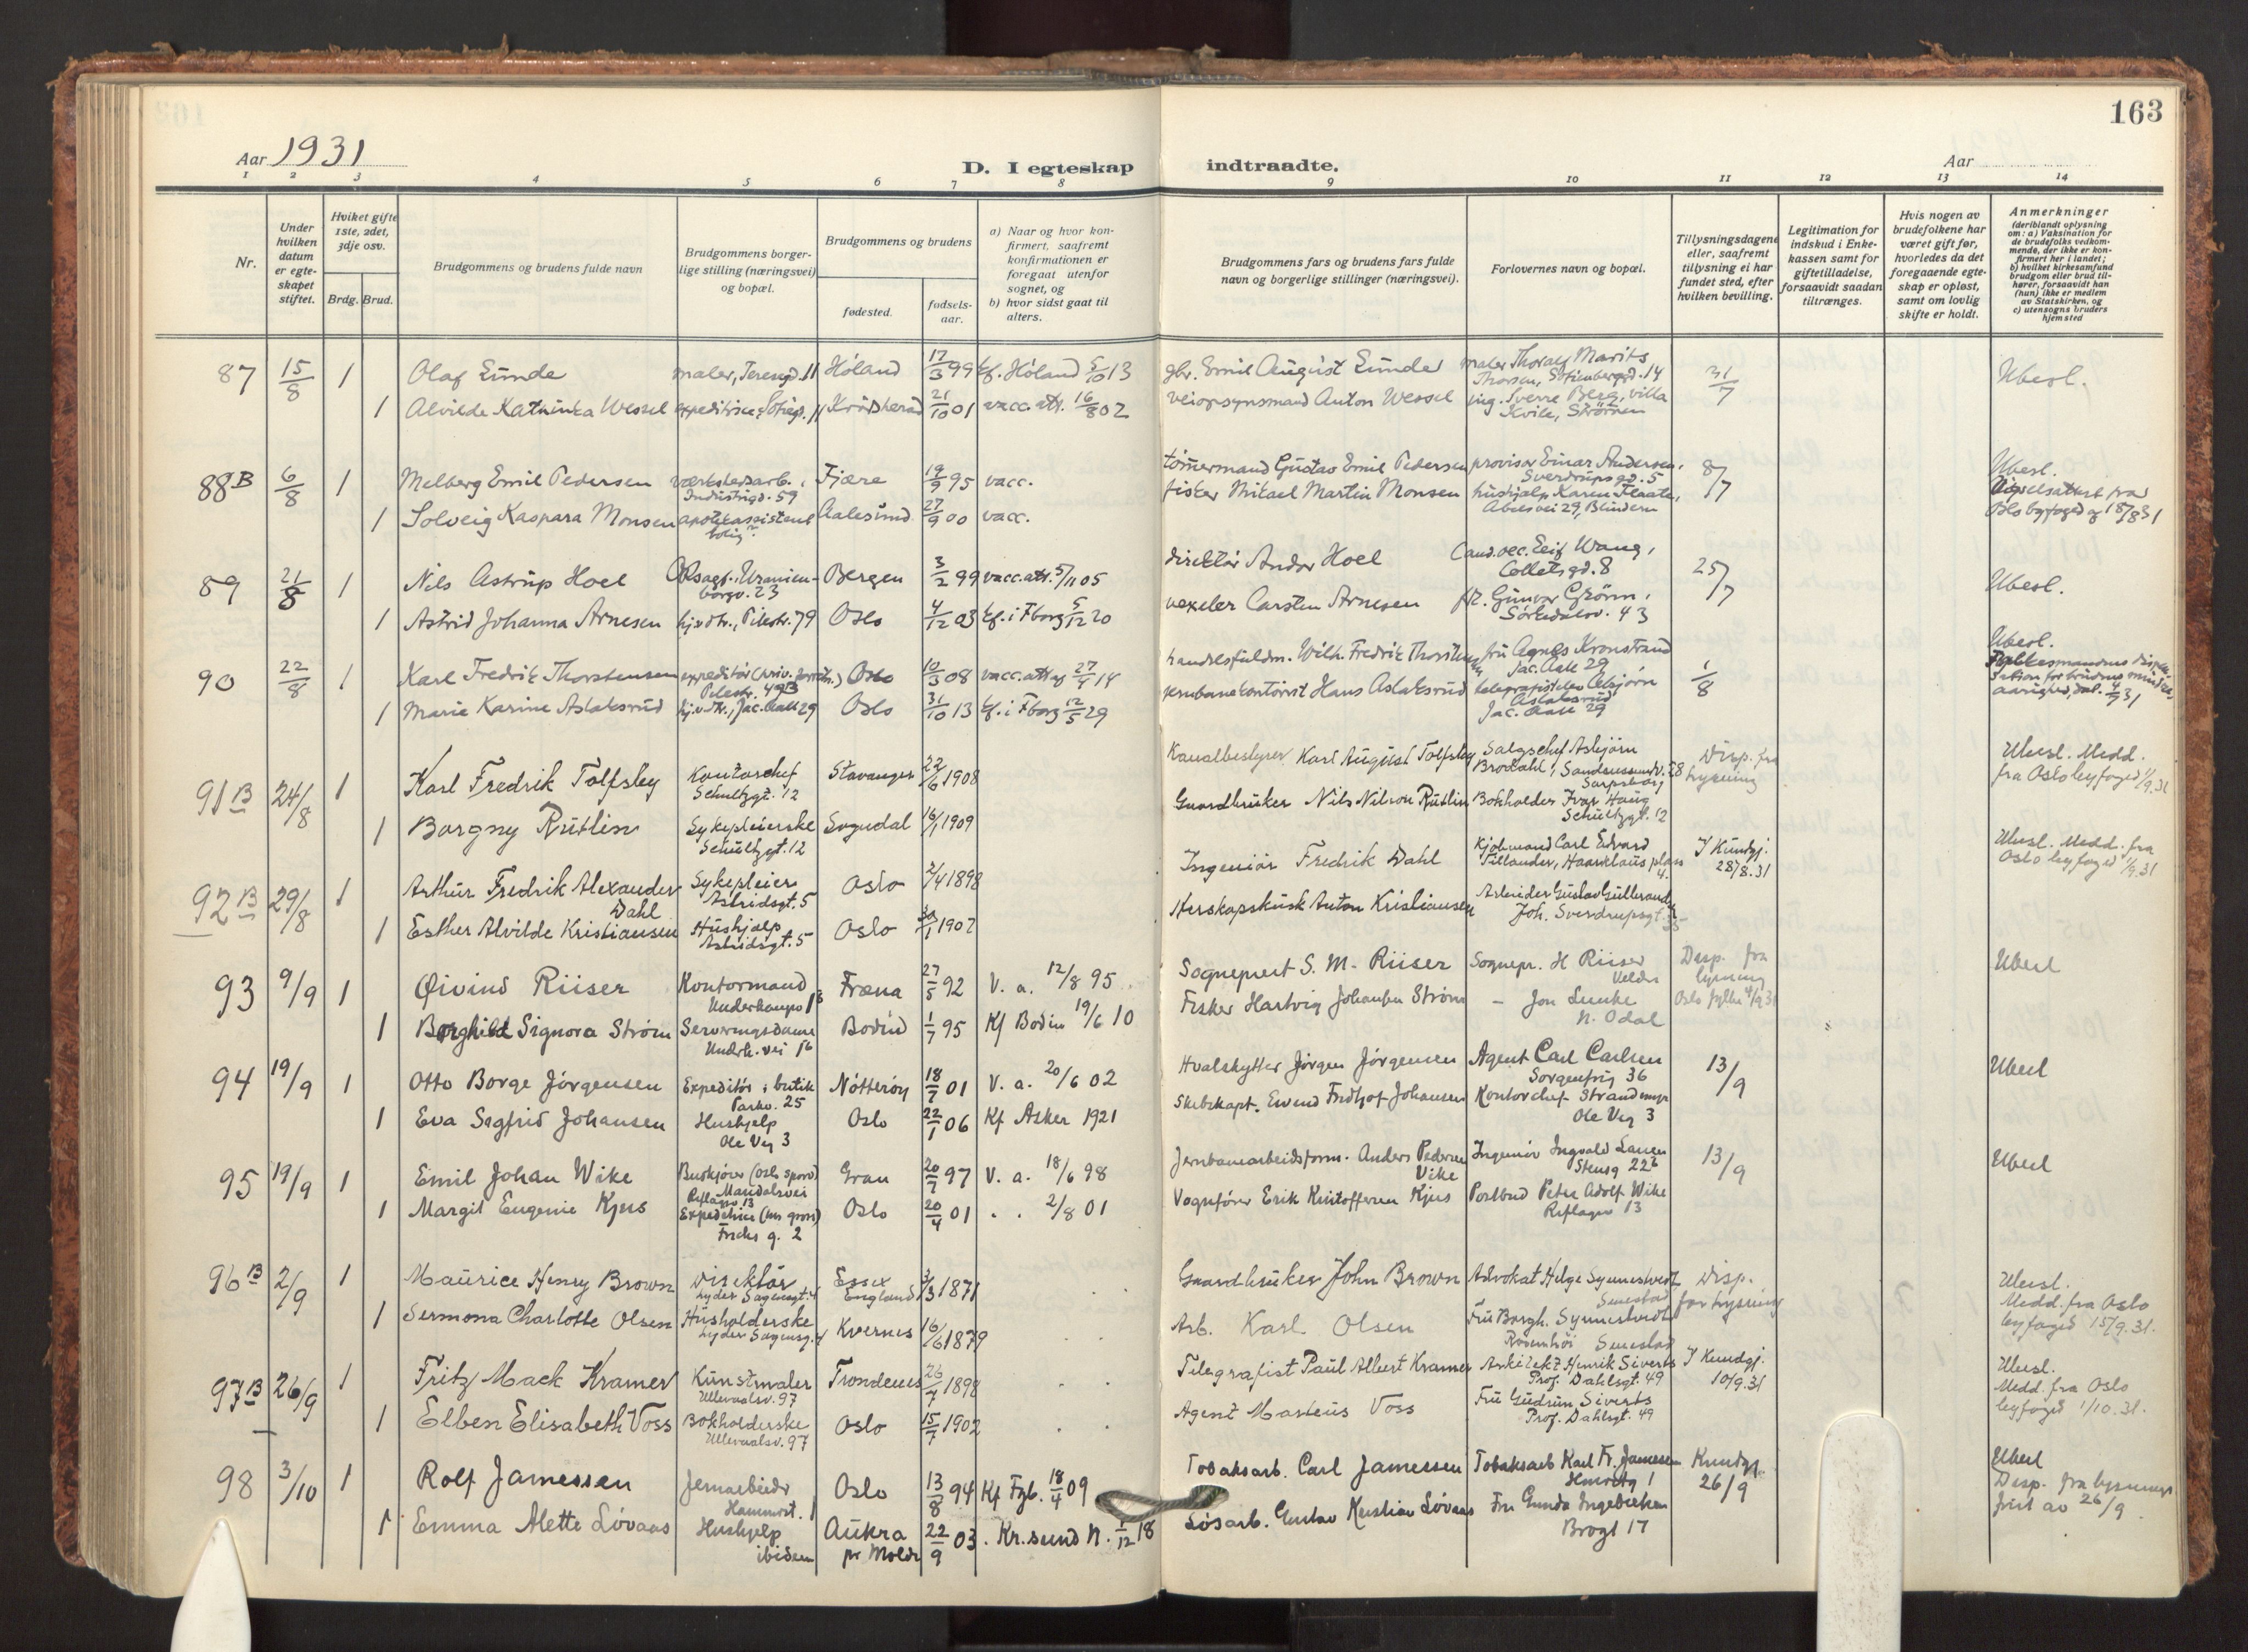 163
Aar 1931
D. I egteskap indtraadte.
Aar
1 2 3 4 5 6 7 8 9 10 11 12 13 14
Nr.
Under hvilken datum er egte-skapet stiftet.
Hviket gifte 1ste, 2det, 3dje osv.
Brdg. Brud.
Brudgommens og brudens fulde navn
Brudgommens borger-lige stilling (næringsvei) og bopæl.
Brudgommens og brudens
fødested.
fødsels-aar.
a) Naar og hvor kon-firmert, saafremt konfirmationen er foregaat utenfor sognet, og
b) hvor sidst gaat til alters.
Brudgommens fars og brudens fars fulde navn og borgerlige stillinger (næringsvei).
Forlovernes navn og bopæl.
Tillysningsdagene eller, saafremt tillysning ei har fundet sted, efter hvilken bevilling.
Legitimation for indskud i Enke-kassen samt for giftetilladelse, forsaavidt saadan tiltrænges.
Hvis nogen av brudefolkene har været gift før, hvorledes da det foregaaende egte-skap er opløst, samt om lovlig skifte er holdt.
Anmerkninger (deriblandt oplysning om: a) Vaksination for de brudefolks vedkom-mende, der ikke er kon-firmert her i landet; b) hvilket kirkesamfund brudgom eller brud til-hører, forsaavidt han (hun) ikke er medlem av Statskirken, og c) utensogns bruders hjemsted
87 15/8 1 Olaf Lunde maler, 11 Høland 17/3 99 kf. Høland 5/10 13 gbr. Emil August Lunde maler Thoralf Marits 31/7 Ubesl.
Thorsen, 14
1 Alvilde Katrinka Wessel 11 Krødsherad 21/10 01 vacc. att. 16/8 02 veiopsynsmand Anton Wessel ing. Sverre Berg, villa
Kvile, Strømen
88 B 6/8 1 Melberg Emil Pedersen verkstedsarb. Fjære 19/9 95 vacc. tømmermand Gustav Emil Pedersen provisor Einar Andersen, 8/7 Ubesl.
Industrigd. 59 Sverdrupsgd. 5 Vigselsattest fra
1 Solveig Kaspara Monsen apotekassistent Aalesund 27/9 00 vacc. fisker Mikael Martin Monsen hushjælp Karen Flaate, Oslo byfoged af 18/8 31
bolig? Abelsvei 29, Blindern
89 21/8 1 Nils Astrup Hoel Uranien- Bergen 3/2 99 vacc. att. 5/11 05 direktør Andor Hoel Cand. oec. Leif Wang, 25/7 Ubesl.
borgv. 23 Colletsgd. 8
1 Astrid Johanna Arnesen hj. v. dtr., Pilestr. 79 Oslo 4/12 03 kf. i Fborg 5/12 20 vexeler Carsten Arnesen frk. Gunvor Grønn,
Sørkedalsv. 43
90 22/8 1 Karl Fredrik Thorstensen expeditør Oslo 10/3 08 vacc. att. af 27/4 14 handelsfuldm. Wilh. Fredrik Thorstensen fru Agnes Kronstrand 1/8 Ubesl.
Pilestr. 49 B Jac. Aall 29 Fylkesmandens dispen-
1 Marie Karine Aslaksrud hj. v. dtr., Jac. Aall 29 Oslo 31/10 13 kf. i Fborg 12/5 29 jernbanekontorist Hans Aslaksrud telegrafistelev Asbjørn sation for brudens mindre-
Aslaksrud aarighed, dat. 4/7 31
Jac. Aall 29
91 B 24/8 1 Karl Fredrik Tolfsby Kontorchef Stavanger 22/6 1908 Kanalbestyrer Karl August Tolfsby Salgschef Asbjørn Disp. fra Ubesl. Medd.
Schultzgt. 12 Brodahl, Sandesundv. 28 lysning fra Oslo byfoged 1/9.31
Sarpsborg
1 Borgny Rutlin Sykepleierske Sogndal 16/1 1909 Gaardbruker Nils Nilson Rutlin Bokholder Ivar Haug
Schultzgt. 12 Schultzgt. 12
92 B 29/8 1 Arthur Fredrik Alexander Sykepleier Oslo 2/4 1898 Ingeniør Fredrik Dahl Kjøbmand Carl Edvard I Kundgj. Ubesl. Medd. fra
Dahl Astridsgt. 5 Tillander, Haarklaus plass 4. 28/8.31 Oslo byfoged 1/9.31
1 Esther Alvilde Kristiansen Hushjælp Oslo 30/1 1907 Herskapskusk Anton Kristiansen Arbeider Gustav Gullerand
Astridsgt. 5 Joh. Sverdrupsgt.
93 9/9 1 Øivind Riiser Kontormand Fræna 27/5 92 V. a. 12/8 95 Sogneprest S. M. Riiser Sognepr. H Riiser Disp. fra Ubesl
Underhaugsv Veldre lysning
1 Borghild Signora Strøm Serveringsdame Bodin 1/7 95 Kf Bodin 19/6 10 Fisker Hartvig Johansen Strøm – Jon Lunke Oslo fylke 4/9 31
Underh. vei N. Odal
94 19/9 1 Otto Borge Jørgensen Expeditør i butik Nøtterøy 18/7 01 V. a. 20/6 02 Hvalskytter Jørgen Jørgensen Agent Carl Carlsen 13/9 Ubesl
Parkv. 25 Sorgenfrig 36
1 Eva Sagfrid Johansen Hushjelp Oslo 22/1 06 Kf Asker 1921 Skibskapt. Eivind Fridtjof Johansen Kontorchef Strandmyr
Ole Vig 3 Ole Vig 3
95 19/9 1 Emil Johan Wike (Oslo sporv) Gran 20/7 97 V. a. 18/6 98 Jernbanearbeidsform. Anders Pedersen Ingeniør Ingvald Lauen 13/9 Ubesl
Mandalsvei Vike Stensg 22b
1 Margit Eugenie Kjus Expeditrice (en gros) Oslo 20/4 01 . . 2/8 01 Vognfører Erik Kristoffersen Kjus Postbud Peter Adolf Wike
Fredes g. 2 13
96 B 2/9 1 Maurice Henry Brown Direktør Essex 3/3 1871 Gaardbruker John Brown Advokat Helge Synnestvedt Disp. Ubesl.
Lyder Sagensgt. 4 England for lysning Medd. fra Oslo
1 Sermona Charlotte Olsen Husholderske Kvernes 16/6 1879 Arb. Karl Olsen Fru Borgh. Synnestvedt byfoged 15/9.31.
Lyder Sagensg. 4
97 B 26/9 1 Fritz Mack Kramer Kunstmaler Trondenes 26/7 1898 Telegrafist Paul Albert Kramer Arkitekt Henrik Siverts I Kundgj. Ubesl.
Ullevaalsv. 97 Prof. Dahlsgt. 49 10/9.31 Medd. fra Oslo
1 Elben Elisabeth Voss Bokholderske Oslo 15/7 1902 Agent Marteus Voss Fru Gudrun Siverts byfoged 1/10.31.
Ullevaalsv. 97 Prof. Dahlsgt. 49
98 3/10 1 Rolf Jamessen Jernarbeider Oslo 13/8 94 Kf Fgb. 18/4 09 Tobaksarb. Carl Jamessen Tobaksarb Karl Fr. Jamessen Kundgj. Ubesl
1 26/9 Disp. fra lysnings
1 Emma Alette Løvaas Hushjelp Aukra 22/9 03 . Kr.sund N. 1/12 18 Løsarb. Gustav Kristian Løvaas Fru Gunda Ingebretsen frist av 26/9
ibidem pr Molde Brogt 17